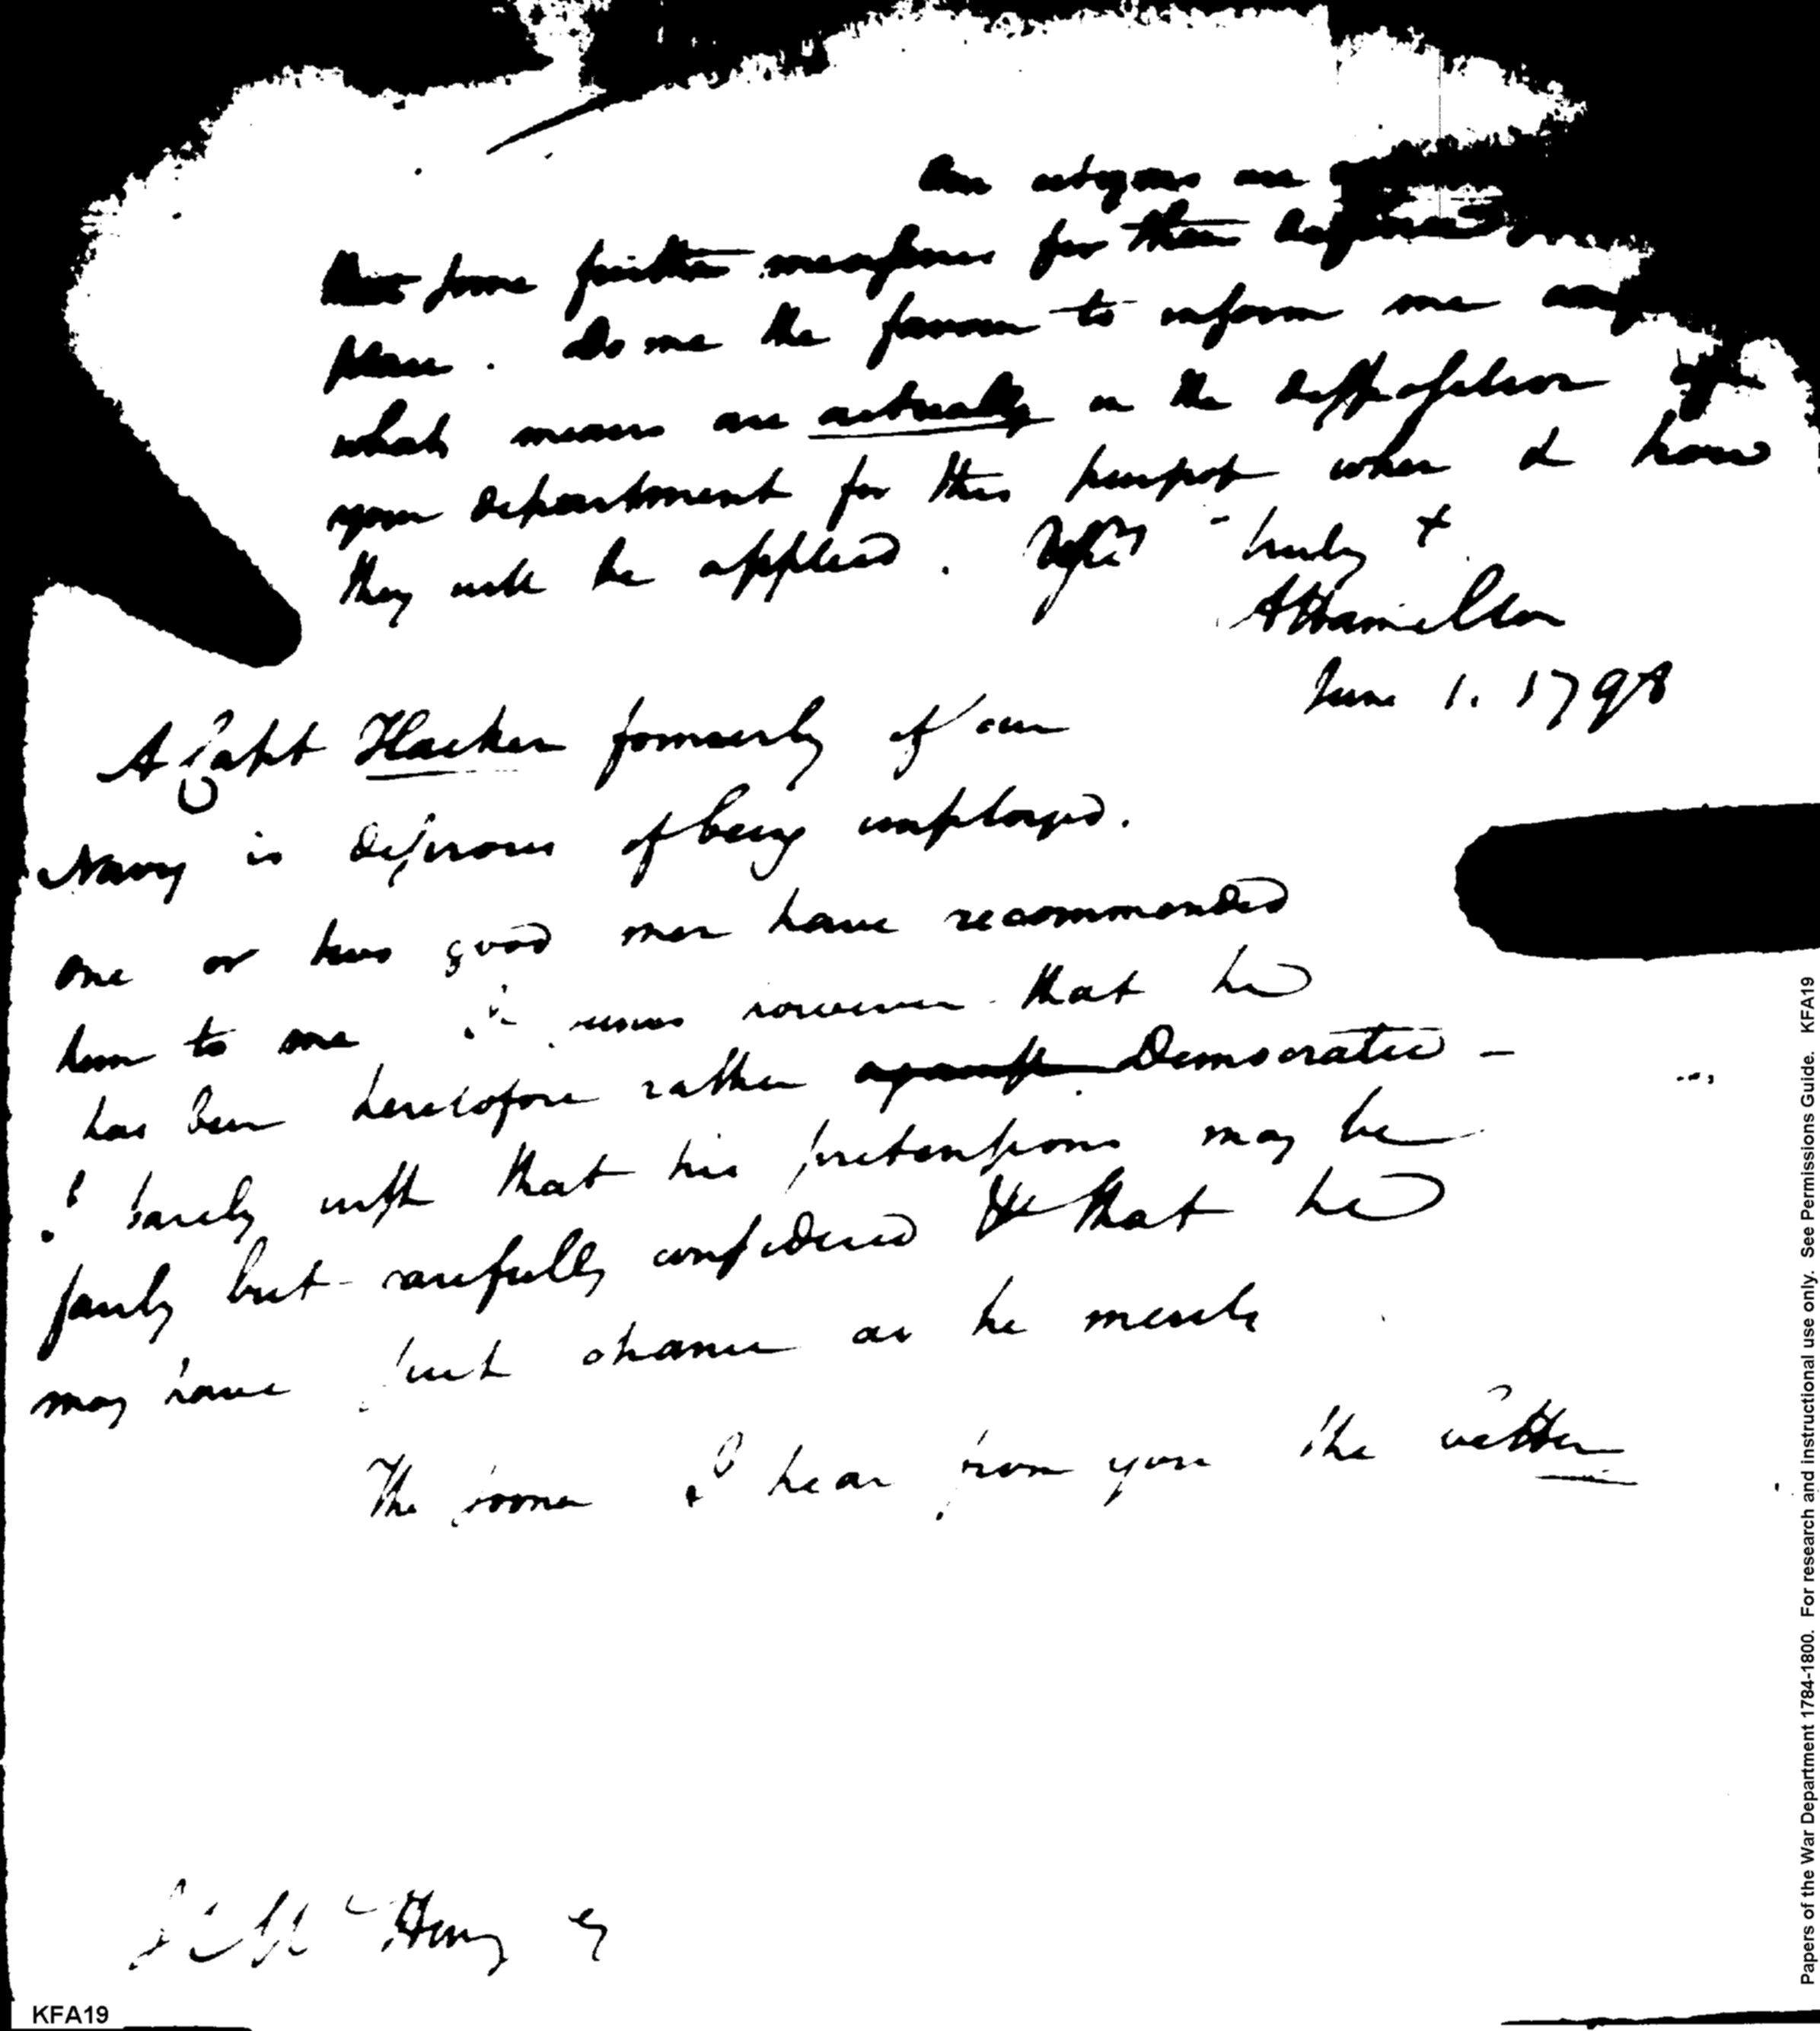 Our citizens are
some further measures for their
place. Do me the favour to inform me
what means are actually in the disposition of
your department for this purpose when & how
they will be applied. Yrs truly
A Hamilton
June 1. 1798
A Capt Hacker formerly of our
Navy is desirous of being employed.
One or two good men have recommended
him to me It seems however that he
has been heretofore rather Democratic –
I barely wish that his pretensions may be
fairly but carefully considered that he
may have such chance as he merits
The sooner I hear from you the better
Mc Henry
KFA19
Papers of the War Department 1784-1800. For research and instructional use only. See Permissions Guide. KFA19